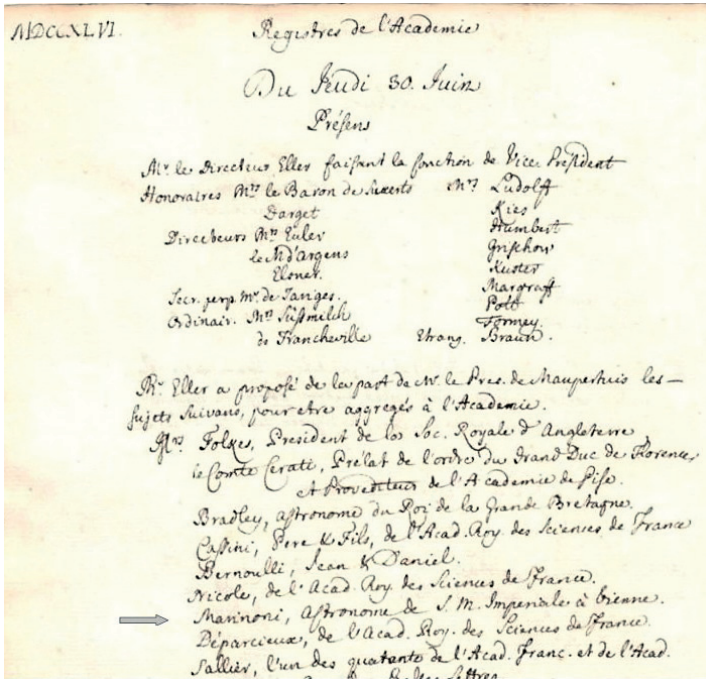 MDCCXLVI. Registres de l'Academie
Du Jeudi 30. Juin
Présens
Mr. le Directeur Eller faisant la fonction de Vice-Président
Honoraires Mrs le Baron de Sweerts Mrs Ludolff
Darget Kies
Directeurs Mrs Euler Humbert
le M d'Argens Grischow
Elsner. Kuster
Secr. perp. Mr. de Jariges. Margraff
Ordinair. Mrs Süssmilch Pott
de Francheville Formey.
Etrang. Braun.
Mr. Eller a proposé de la part de M. le Pres. de Maupertuis les
sujets suivans, pour etre aggregés à l'Academie.
Mrs Folkes, President de la Soc. Royale d'Angleterre
le Comte Cerati, Prélat de l'ordre du Grand Duc de Florence,
et Provediteur de l'Academie de Pise.
Bradley, astronome du Roi de la Grande Bretagne.
Cassini, Pere & Fils, de l'Acad. Roy. des Sciences de France
Bernoulli, Jean & Daniel.
Nicole, de l'Acad. Roy. des Sciences de France.
Marinoni, Astronome de S. M. Imperiale à Vienne.
Déparcieux, de l'Acad. Roy. des Sciences de France.
Sallier, l'un des quarante de l'Acad. Franc. et de l'Acad.
Belles Lettres